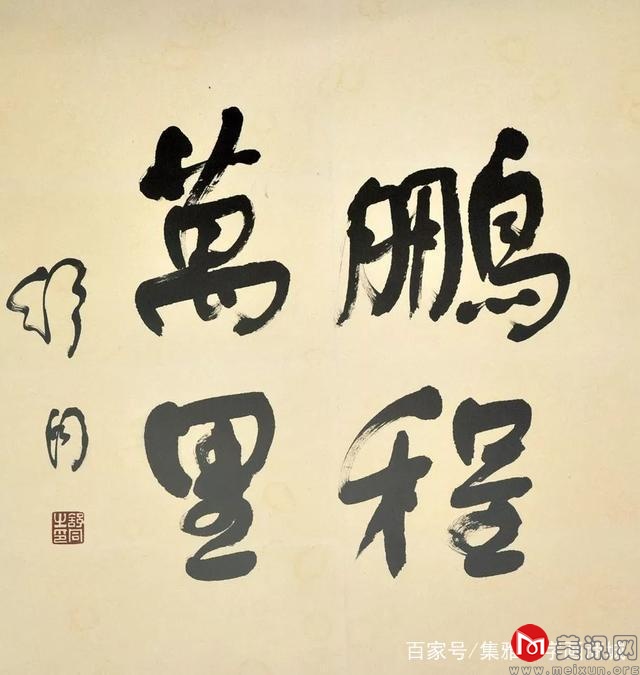 鵬程
萬里
舒同
舒同之印
百家号/集雅
美讯网
www.meixun.org